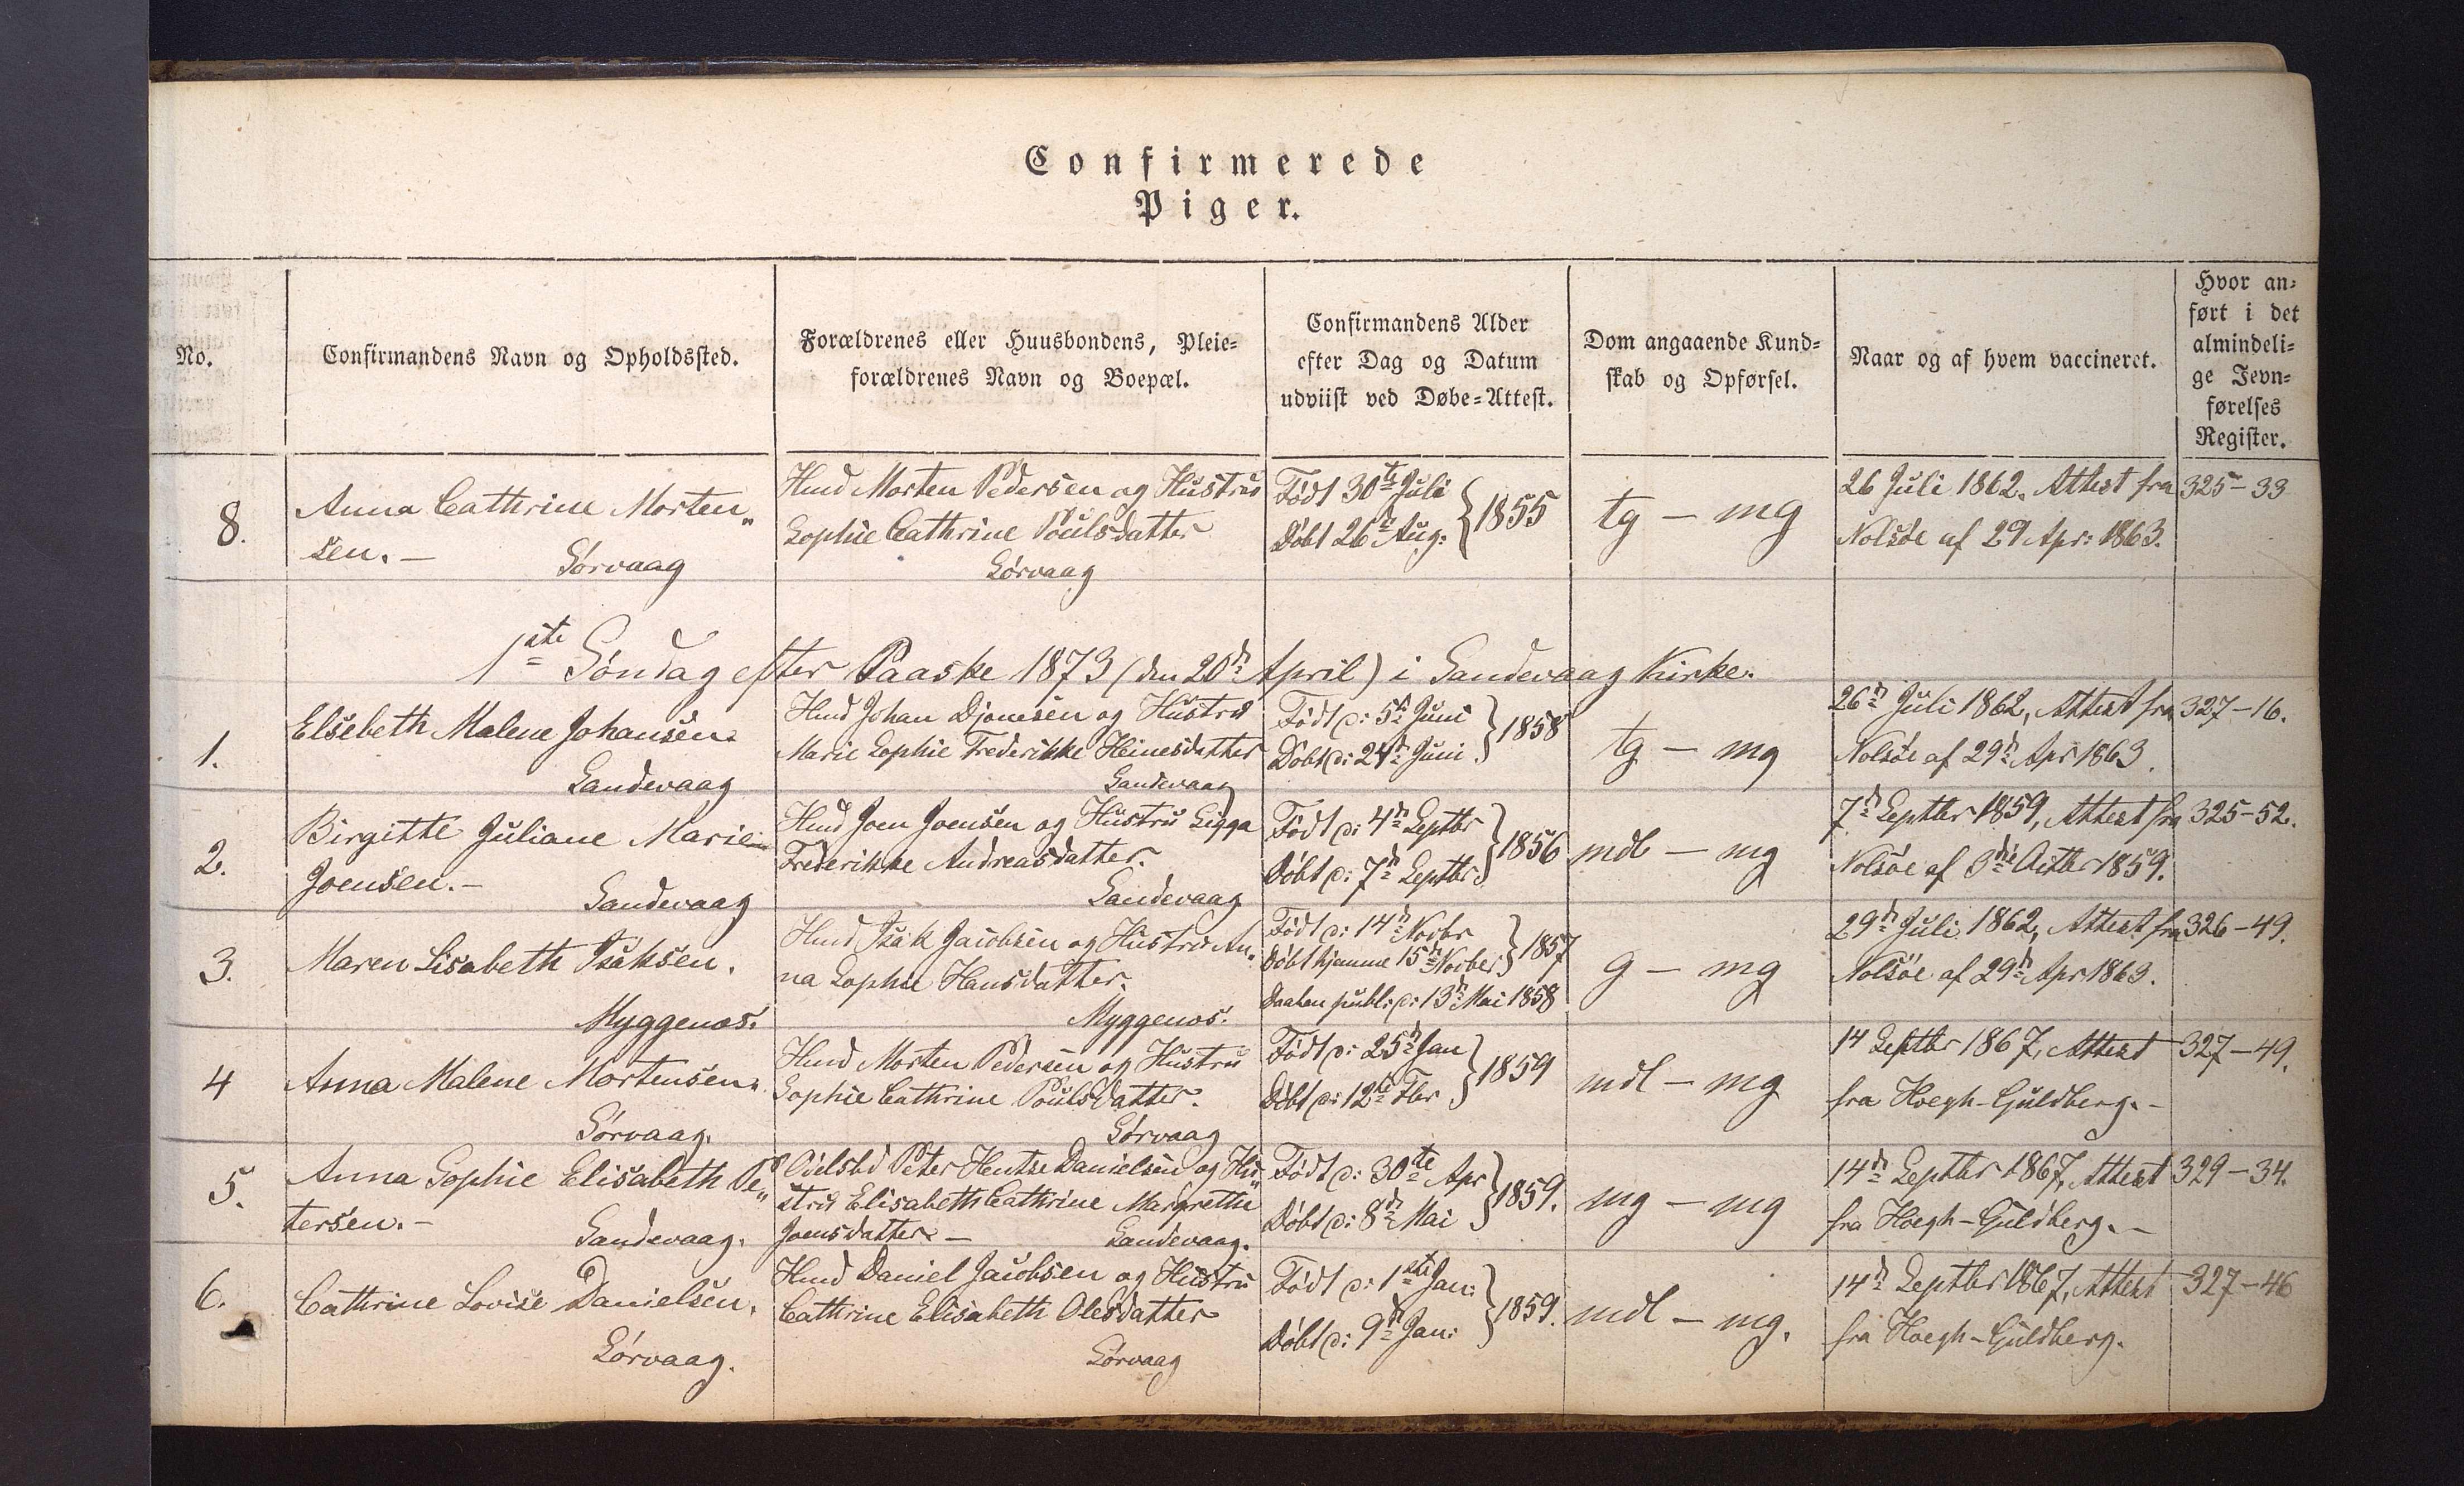 Confirmerede
Piger.
No.
Confirmandens Navn og Opholdssted.
Forældrenes eller Huusbondens, Pleie=
forældrenes Navn og Boepæl.
Confirmandens Alder
efter Dag og Datum
udviist ved Døbe=Attest.
Dom angaaende Kund=
skab og Opførsel.
Naar og af hvem vaccineret.
Hvor an=
ført i det
almindeli=
ge Jevn=
førelses
Register.
8.
Anna Cathrine Morten„
sen. –
Sørvaag
Hmd Morten Pedersen og Hustru
Sophie Cathrine Poulsdatter
Sørvaag
Født 30te Juli
Døbt 26d Aug: } 1855
tg – mg
26 Juli 1862. Attest fra
Nolsøe af 29 Apr: 1863.
325–33
1ste Søndag efter Paaske 1873 (den 20d April) i Sandevaag Kirke.
1.
Elsebeth Malene Johansen.
Sandevaag
Hmd Johan Djonesen og Hustru
Marie Sophie Frederikke Heinesdatter
Sandevaag
Født d: 5te Juni
Døbt d: 24d Juni } 1858
tg – mg
26d Juli 1862, Attest fra
Nolsøe af 29d Apr 1863.
327–16.
2.
Birgitte Juliane Marie
Joensen. –
Sandevaag
Hmd Joen Joensen og Hustru Sigga
Frederikke Andreasdatter.
Sandevaag
Født d: 4d Septbr
Døbt d: 7d Septbr } 1856
mdl – mg
7d Septbr 1859, Attest fra
Nolsøe af 3die Octbr 1859.
325–52.
3.
Maren Lisabeth Isaksen.
Myggenæs.
Hmd Isak Jacobsen og Hustru An„
na Sophie Hansdatter.
Myggenæs.
Født d: 14d Novbr
Døbt hjemme 15d Novber } 1857
Daaben publ: d: 13d Mai 1858
g – mg
29d Juli 1862, Attest fra
Nolsøe af 29d Apr 1863.
326–49.
4
Anna Malene Mortensen.
Sørvaag.
Hmd Morten Pedersen og Hustru
Sophie Cathrine Poulsdatter.
Sørvaag
Født d: 25d Jan
Døbt d: 12te Fbr } 1859
mdl – mg
14 Septbr 1867, Attest
fra Hoegh-Guldberg. –
327–49.
5.
Anna Sophie Elisabeth Pe„
tersen. –
Sandevaag.
Odelsbd Peter Hentze Danielsen og Hu„
stru Elisabeth Cathrine Margrethe
Joensdatter –
Sandevaag.
Født d: 30te Apr
Døbt d: 8d Mai } 1859.
mg – mg
14d Septbr 1867, Attest
fra Høegh-Guldberg. –
329–34.
6.
Cathrine Lovise Danielsen.
Sørvaag.
Hmd Daniel Jacobsen og Hustru
Cathrine Elisabeth Olesdatter
Sørvaag
Født d: 1ste Jan:
Døbt d: 9d Jan: } 1859.
mdl – mg.
14d Septbr 1867, Attest
fra Hoegh-Guldberg.
327–46